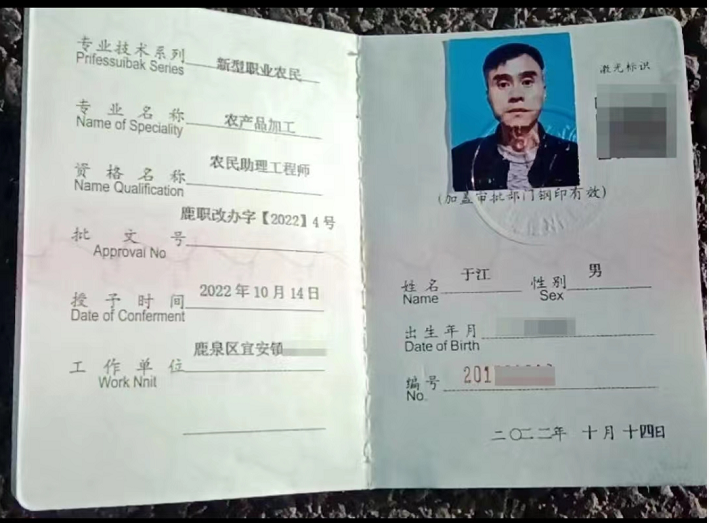 专业技术系列 新型职业农民
Prifessuibak Series
专业名称 农产品加工
Name of Speciality
资格名称 农民助理工程师
Name Qualification
鹿职改办字【2022】4号
批文号
Approval No
授予时间 2022年10月14日
Date of Conferment
工作单位 鹿泉区宜安镇
Work Nnit
激光标识
(加盖审批部门钢印有效)
姓名 于江 性别 男
Name Sex
出生年月
Date of Birth
编号 201
No.
二〇二二年 十月 十四日